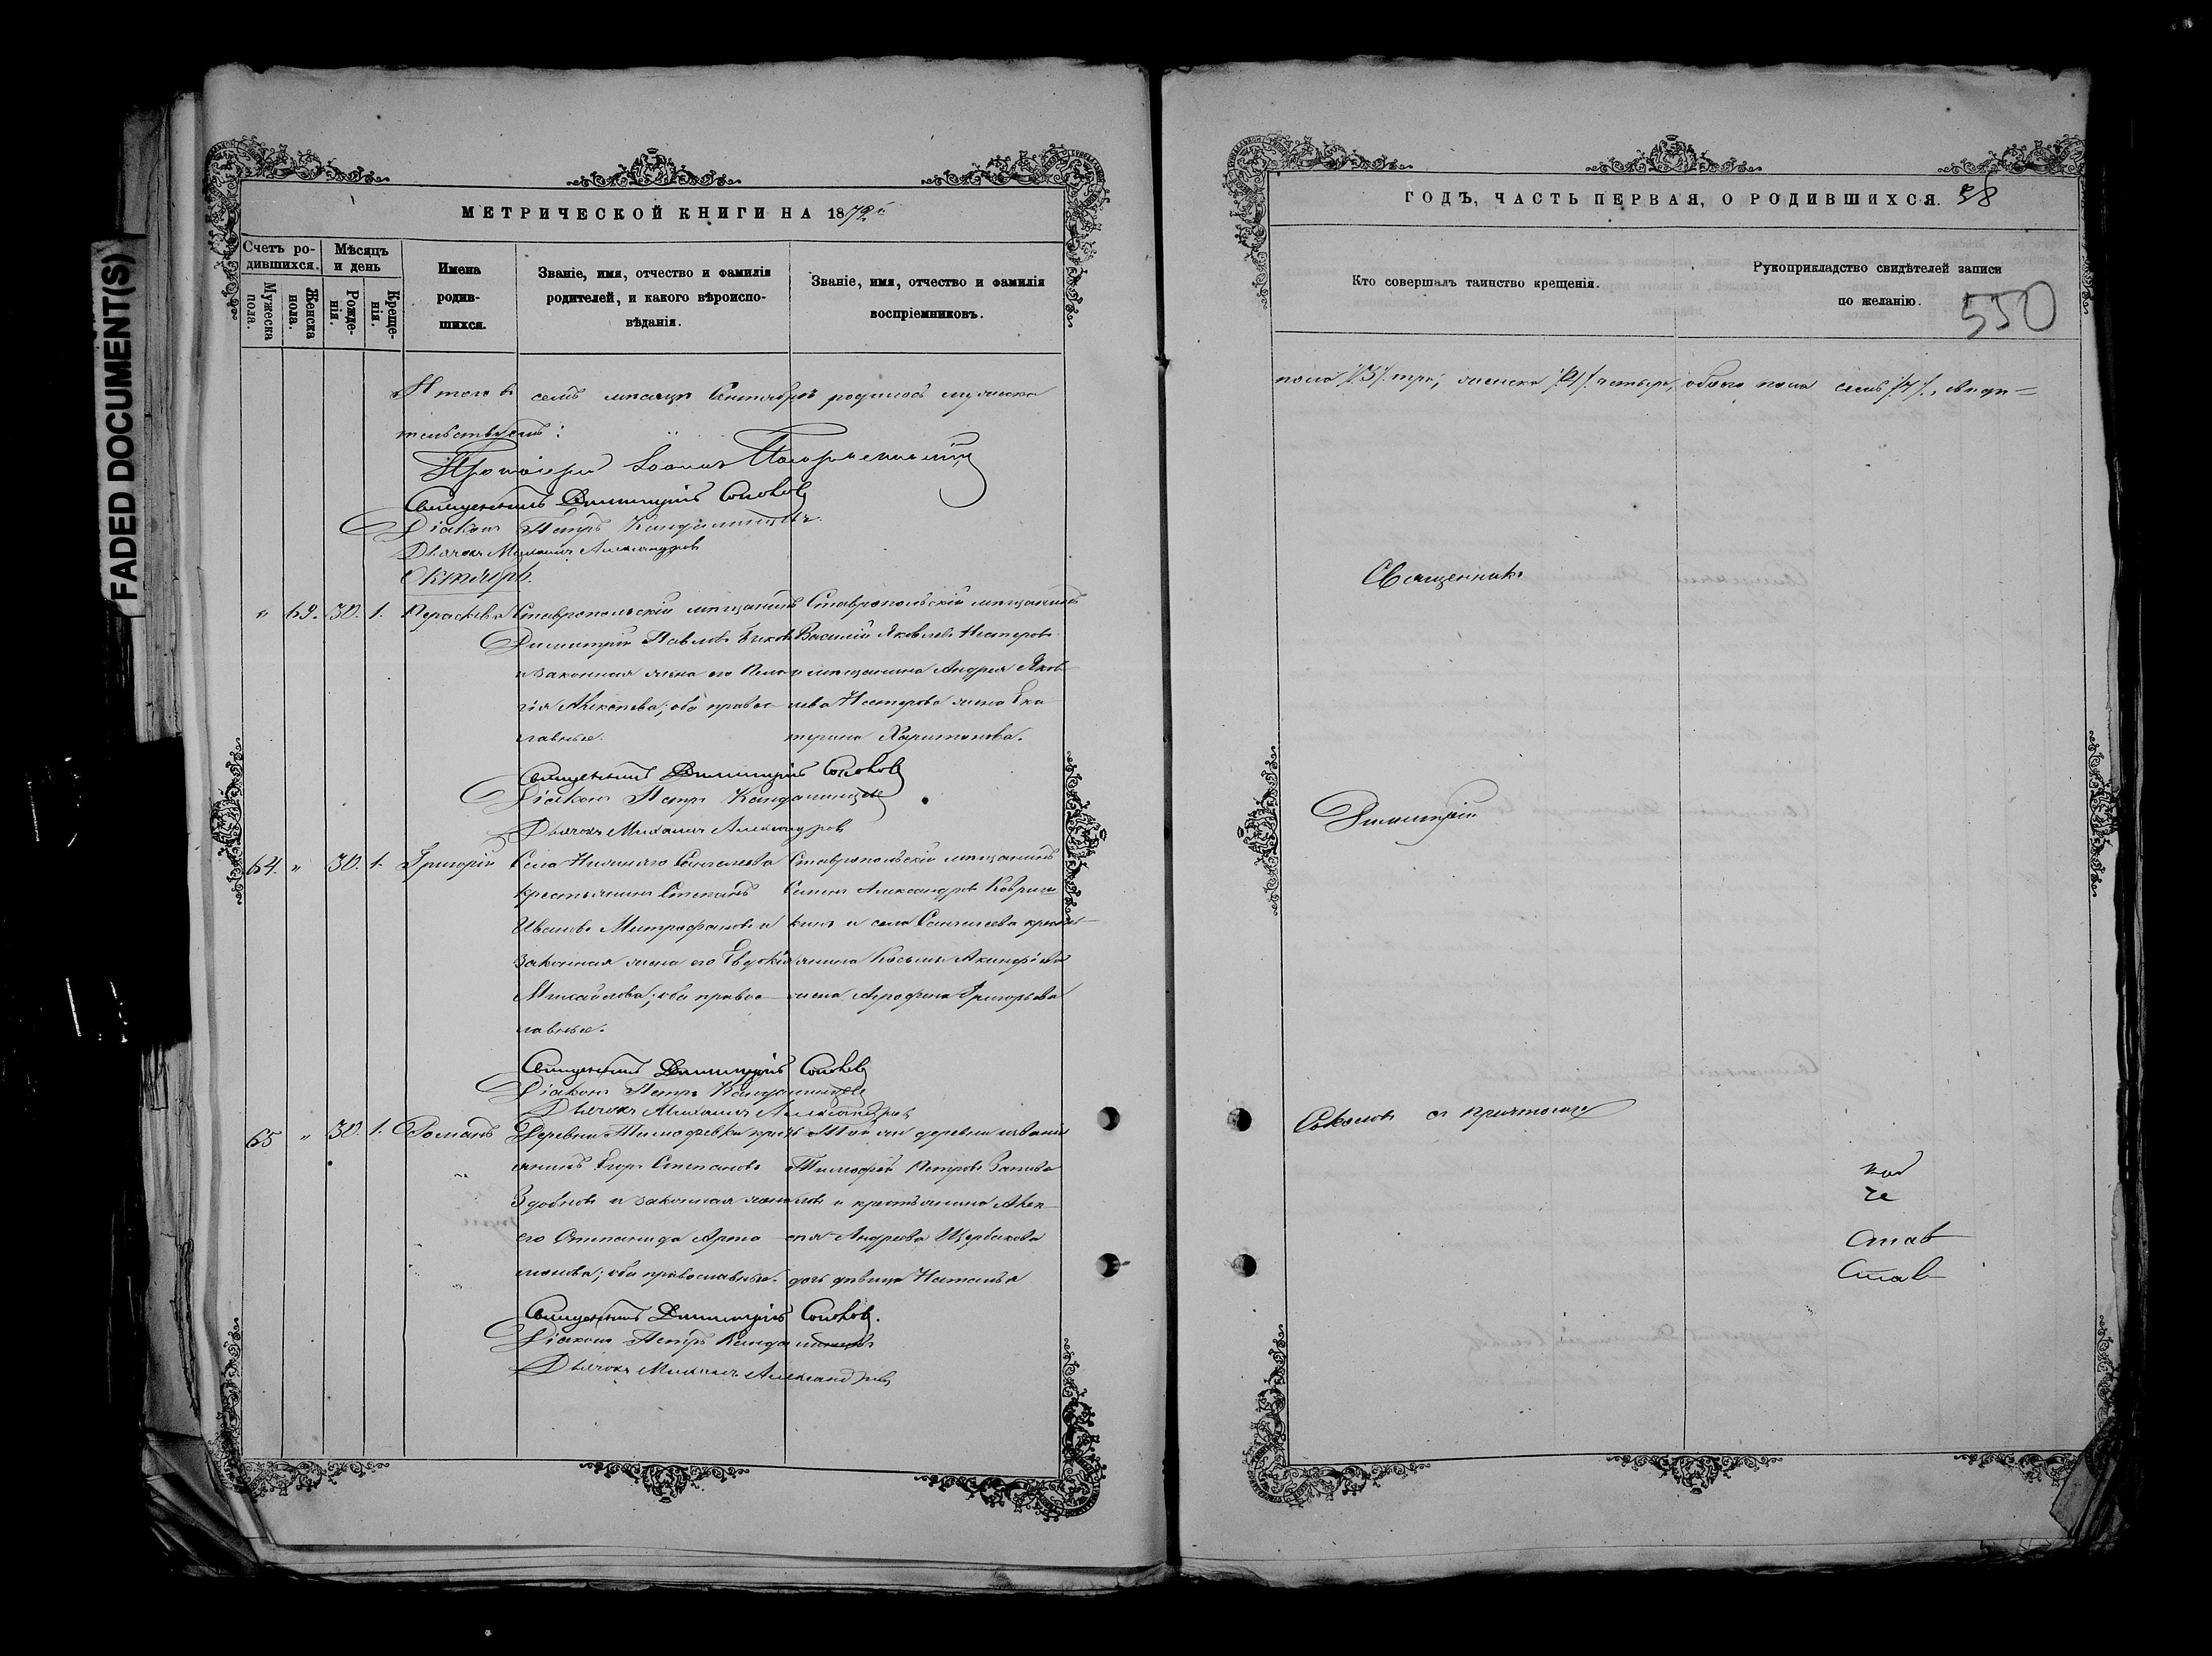 FADED DOCUMENT(S)
МЕТРИЧЕСКОЙ КНИГИ НА 1872й
Счетъ родившихся.
Мужеска пола.
Женска пола.
Мѣсяцъ и день
Рожденія.
Крещенія.
Имена родившихся.
Званіе, имя, отчество и фамилія родителей, и какого вѣроисповѣданія.
Званіе, имя, отчество и фамилія воспріемниковъ.
Итого въ семъ мѣсяцѣ Сентябрѣ родилось мужеска
тельствуемъ:
Протоіерей Іоаннъ
Священникъ Димитрій Соколовъ
Діаконъ Петръ
Дьячокъ Михаилъ Александровъ
Октябрь.
" 69. 30. 1. Параскева
Ставропольскій мѣщанинъ
Димитрій Павловъ Быковъ
и законная жена его Пела-
гія Алексѣева; оба правос-
лавные.
Ставропольскій мѣщанинъ
Василій Яковлевъ Нестеровъ
и мѣщанина Андрея Яков-
лева Нестерова жена Ека-
терина Харитонова.
Священникъ Димитрій Соколовъ
Діаконъ Петръ
Дьячокъ Михаилъ Александровъ
64. " 30. 1. Григорій
Села Нижняго Санчелеева
крестьянинъ Степанъ
Ивановъ Митрофановъ и
законная жена его Евдокія
Михайлова; оба правос-
лавные.
Ставропольскій мѣщанинъ
Семенъ Александровъ Коври-
кинъ и села Санчелеева кресть-
янина Косьмы Акинфіева
жена Агрофена Григорьева
Священникъ Димитрій Соколовъ
Діаконъ Петръ
Дьячокъ Михаилъ Александровъ
65 " 30. 1. Романъ
Деревни Тимофеевки кресть-
янинъ Егоръ Степановъ
Здобновъ и законная жена
его Степанида Арта-
монова; оба православные.
Той же деревни
Тимофей Петровъ
и крестьянина Алек-
сѣя Андреева Щербакова
дочь дѣвица Наталья
Священникъ Димитрій Соколовъ.
Діаконъ Петръ
Дьячокъ Михаилъ Александровъ
ГОДЪ, ЧАСТЬ ПЕРВАЯ, О РОДИВШИХСЯ. 58
Кто совершалъ таинство крещенія.
Рукоприкладство свидѣтелей записи по желанію.
550
пола /3/. три, женска /4/. четыре, обоего пола семь /7/., свидѣ=
Священникъ
Димитрій
Соколовъ съ причтомъ
че
Став
Став